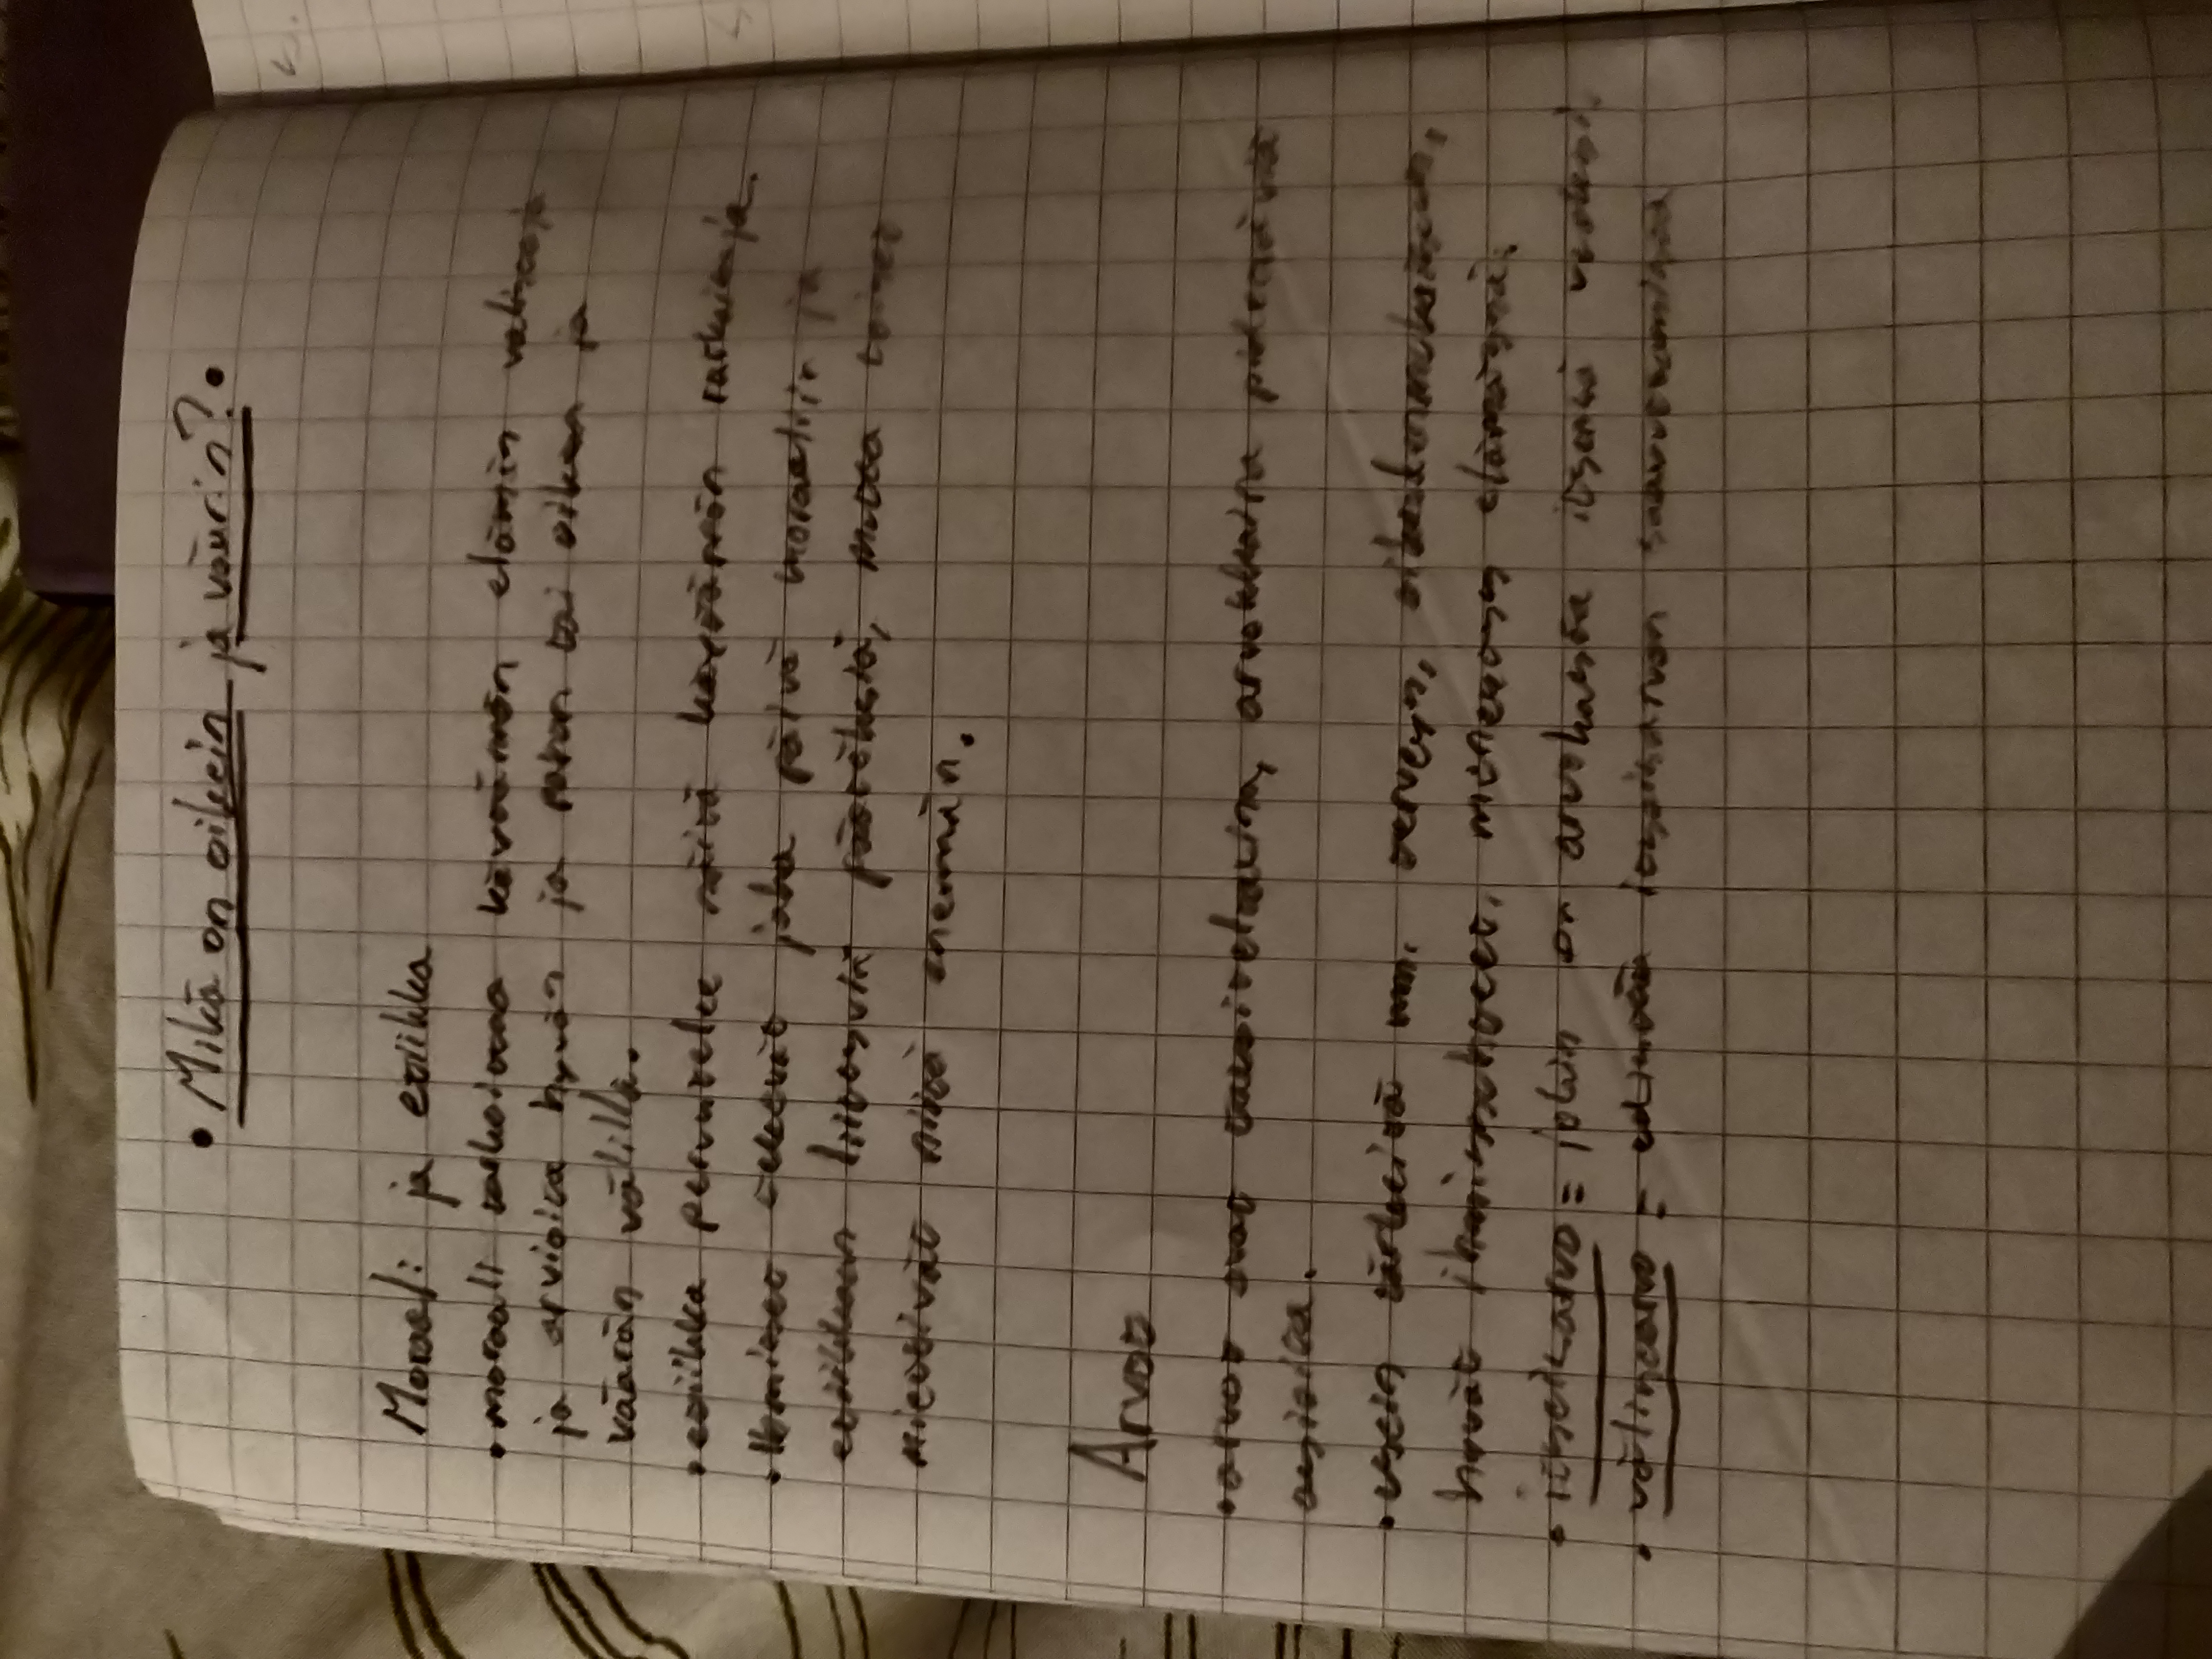 • Mikä on oikein ja väärin?.
Moraali ja etiikka
• moraali tarkoittaa käytännön elämän valintoja
ja arvioita hyvän ja pahan tai oikean ja
väärän välillä.
• etiikka perustelee näitä käytännön ratkaisuja.
• Ihmiset tekevät joka päivä moraaliin ja
etiikkaan liittyviä päätöksiä, mutta toiset
miettivät niitä enemmän.
Arvot
• arvot ovat tavoiteltavina, arvokkaina pidettäviä
asioita.
• usein tärkeitä mm. terveys, oikeudenmukaisuus,
hyvät ihmissuhteet, menestys elämässä.
• itseisarvo = jokin on arvokasta itsensä vuoksi.
• välinearvo = edistää itseisarvon saavuttamista